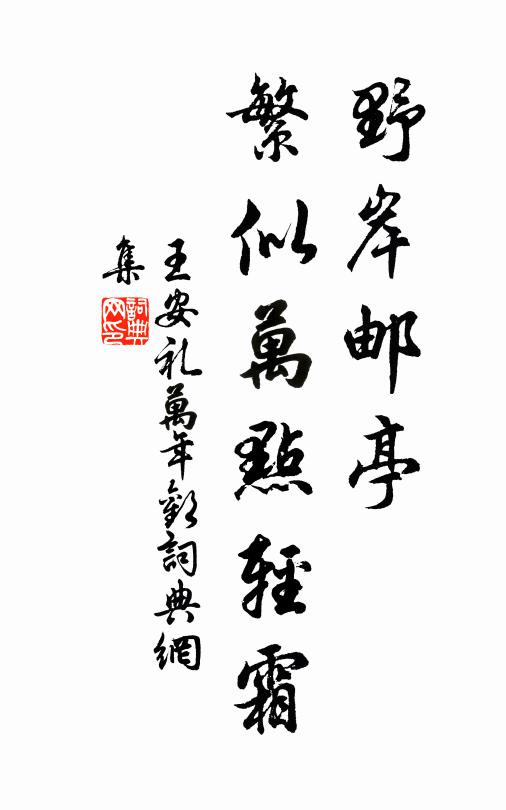 野岸邮亭
繁似萬點輕霜
王安礼萬年歡詞典網
集
詞典网印